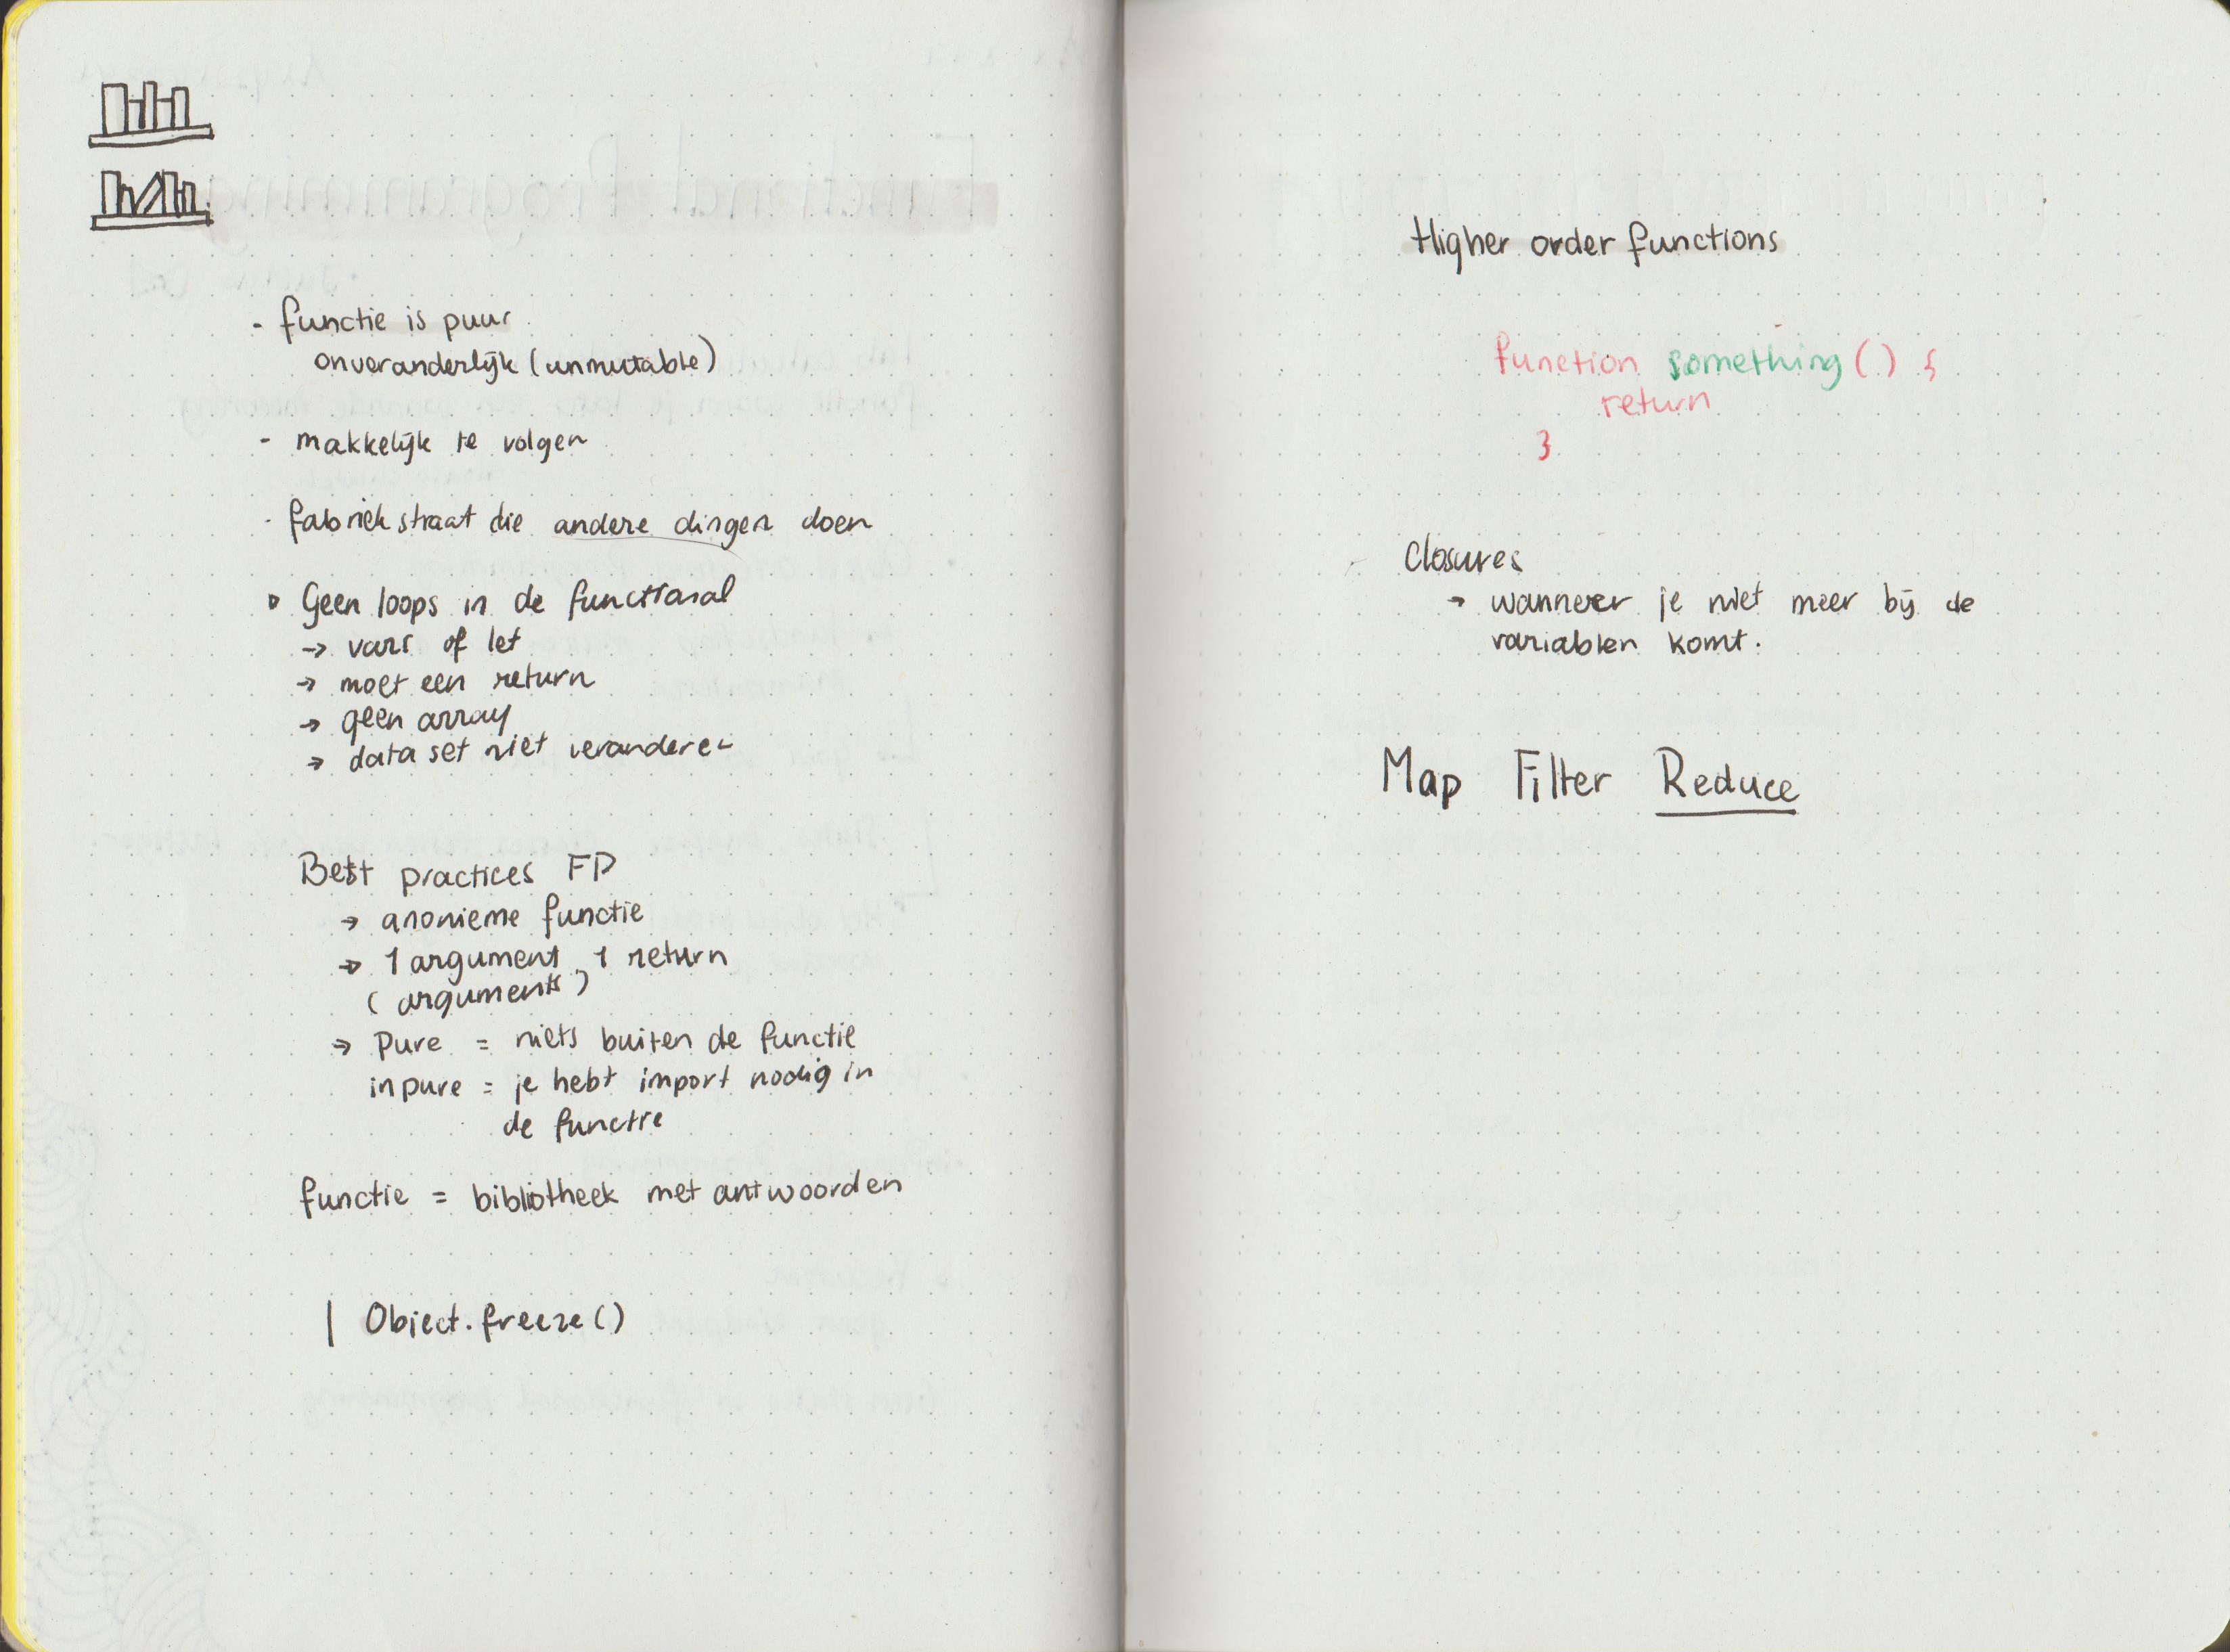 - functie is puur
onveranderlijk (unmutable)
- makkelijk te volgen
- fabriekstraat die andere dingen doen
Geen loops in de functional
→ vars of let
→ moet een return
→ geen array
→ data set niet veranderen
Best practices FP
→ anonieme functie
→ 1 argument, 1 return
(arguments)
→ Pure = niets buiten de functie
inpure = je hebt import nodig in
de functie
functie = bibliotheek met antwoorden
| Object.freeze()
Higher order functions
function something() {
return
}
Closures
→ wanneer je niet meer bij de
variablen komt.
Map Filter Reduce